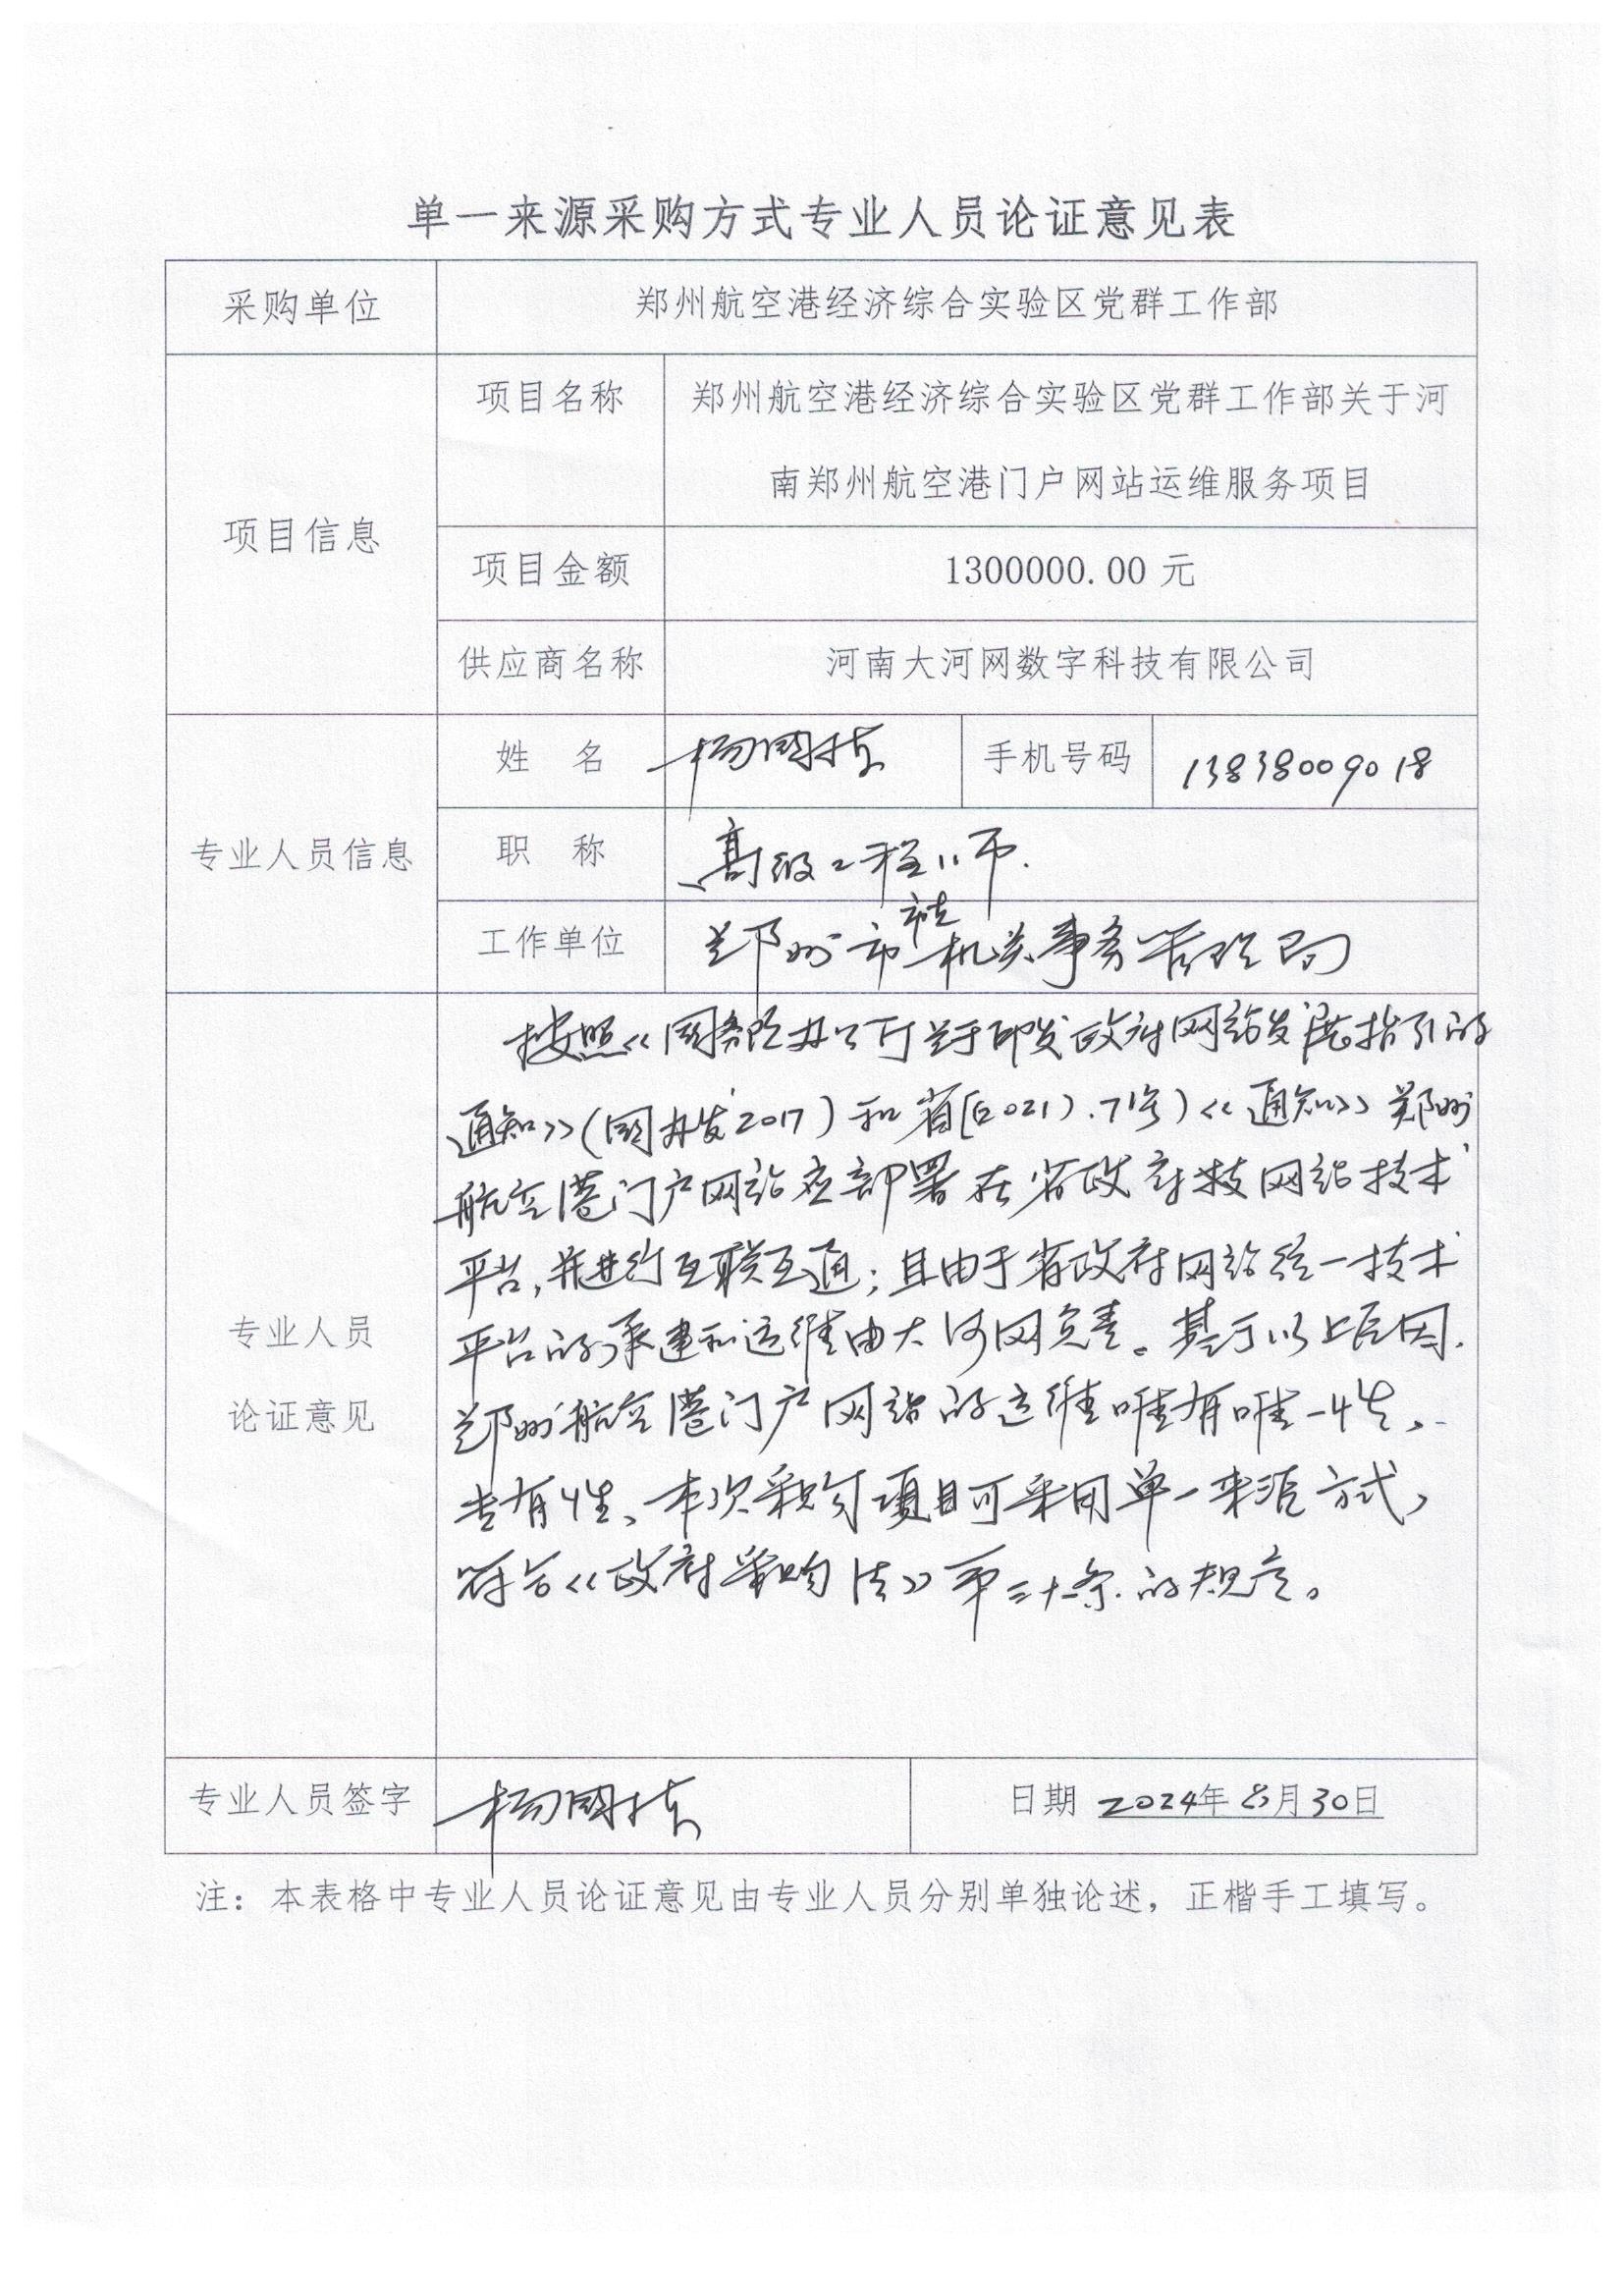 单一来源采购方式专业人员论证意见表
采购单位 郑州航空港经济综合实验区党群工作部
项目信息
项目名称 郑州航空港经济综合实验区党群工作部关于河
南郑州航空港门户网站运维服务项目
项目金额 1300000.00 元
供应商名称 河南大河网数字科技有限公司
专业人员信息
姓 名 杨国栋 手机号码 13838009018
职 称 高级工程师.
工作单位 郑州市直机关事务管理局
专业人员
论证意见
按照《国务院办公厅关于印发政府网站发展指引的
通知》(国办发2017)和省[2021).71号)《通知》郑州
航空港门户网站应部署在省政府 网站技术
平台,并进行互联互通;且由于省政府网站统一技术
平台的承建和运维由大河网负责。基于以上原因.
郑州航空港门户网站的运维唯有唯一性、
专有性、本次采购项目可采用单一来源方式,
符合《政府采购法》第三十一条.的规定。
专业人员签字 杨国栋 日期 2024年8月30日
注:本表格中专业人员论证意见由专业人员分别单独论述,正楷手工填写。